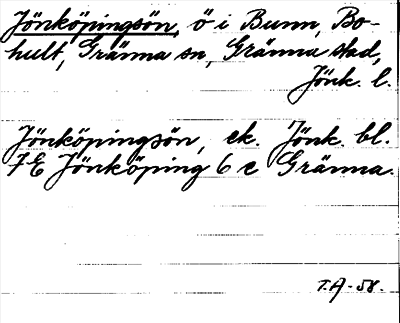 Jönköpingsön, ö i Bunn, Bo-
hult, Gränna sn, Gränna stad,
Jönk. l.
Jönköpingsön, ek. Jönk. bl.
7E Jönköping 6 c Gränna.
T.A-58.